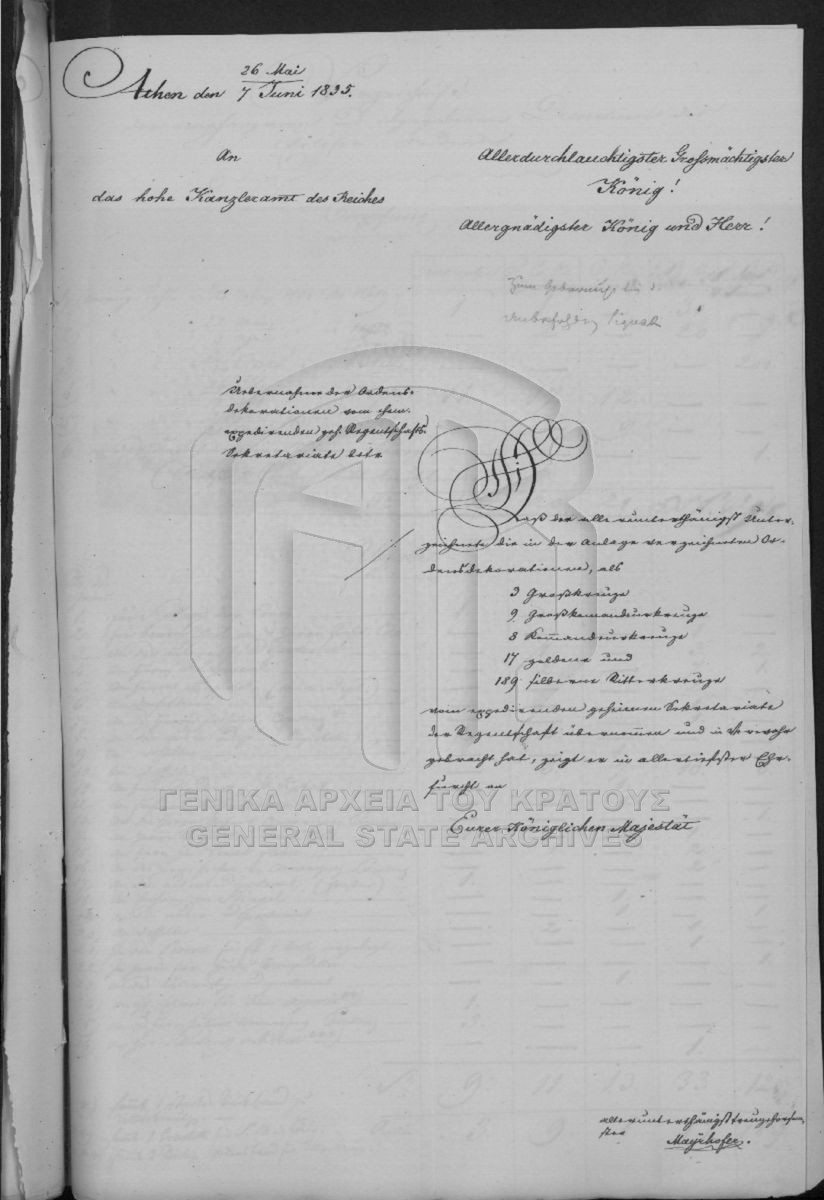 26 Mai
Athen den 7 Juni 1835.
An
das hohe Kanzleramt des Reiches
Allerdurchlauchtigster Grossmächtigster
König!
Allergnädigster König und Herr!
Uebernahme der Ordens-
dekorationen vom ehem.
expedirenden geh. Regentschafts-
Sekretariate betr.
Daß der allerunterthänigst Unter-
zeichnete die in der Anlage verzeichneten Or-
densdekorationen, als
3 Großkreuze
9 Großkomandeurkreuze
8 Kom̅andeurkreuze
17 goldene und
189 silberne Ritterkreuze
vom expedirenden geheimen Sekretariate
der Regentschaft übernom̅en und in Verwahr
gebracht hat, zeigt er in allertiefster Ehr-
furcht an
Eurer Königlichen Majestät
ΓΕΝΙΚΑ ΑΡΧΕΙΑ ΤΟΥ ΚΡΑΤΟΥΣ
GENERAL STATE ARCHIVES
allerunterthänigst treugehorsam-
ster
Mayrhofer.